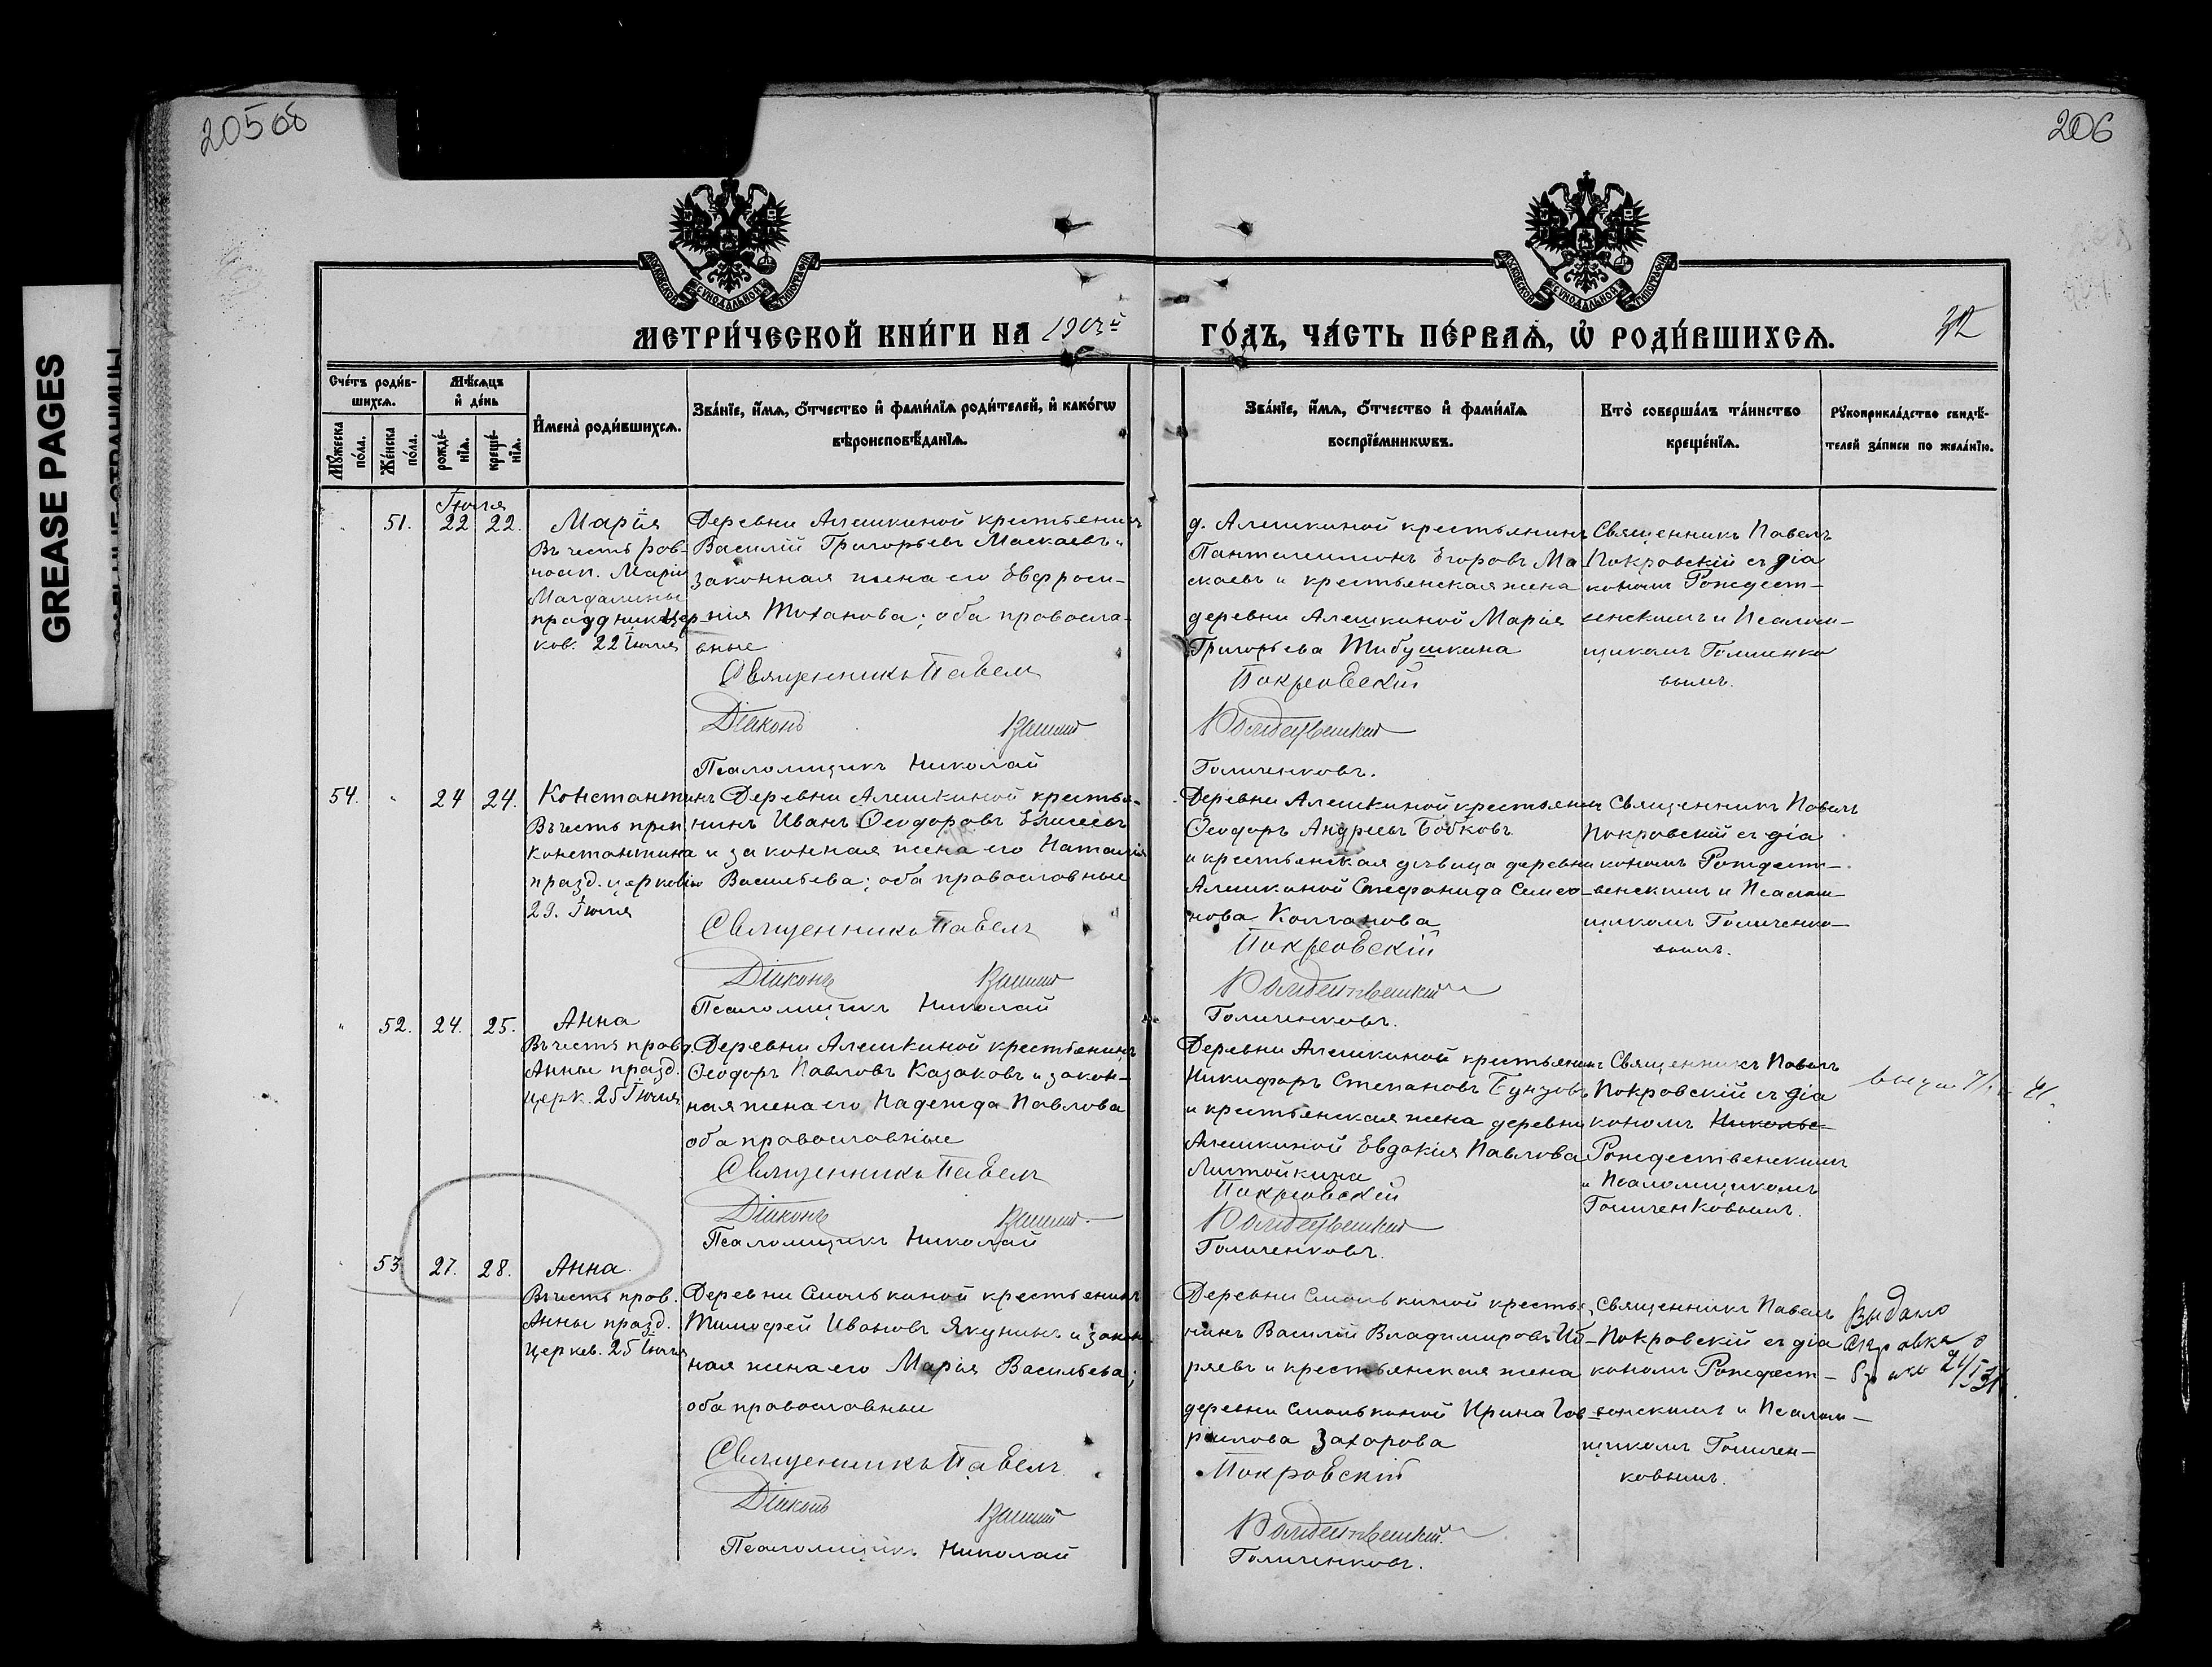 205 об
206
GREASE PAGES
МОСКОВСКОЙ СѴНОДАЛЬНОЙ ТИПОГРАФІИ
МОСКОВСКОЙ СѴНОДАЛЬНОЙ ТИПОГРАФІИ
МЕТРИ́ЧЕСКОЙ КНИ́ГИ НА
ГО́ДЪ, ЧА́СТЬ ПЕ́РВАѦ, Ѡ҆ РОДИ́ВШИХСѦ.
32
Сче́тъ роди́в-
шихсѧ.
Мѣ́сѧцъ
и҆ де́нь
Мꙋ́жеска
по́ла.
Же́нска
по́ла.
рожде́-
нїѧ.
креще́-
нїѧ.
И҆мена̀ роди́вшихсѧ.
Зва́нїе, и҆́мѧ, ѻ҆́тчество и҆ фами́лїѧ роди́телей, и҆ како́гѡ
вѣроисповѣ́данїѧ.
Зва́нїе, и҆́мѧ, ѻ҆́тчество и҆ фами́лїѧ
воспрїе́мникѡвъ.
Кто̀ соверша́лъ та́инство
креще́нїѧ.
Рꙋкоприкла́дство свидѣ́-
телей за́писи по жела́нїю.
Іюля
51.
22
22.
Марія
Въ честь рав-
ноап. Маріи
Магдалины
праздник. цер
ков. 22 Іюля
Деревни Алешкиной крестьянинъ
Василій Григорьевъ Маскаевъ и
законная жена его Евфроси-
нія Тоханова; оба правосла-
вные
Священникъ Павелъ
Діаконъ
Псаломщикъ Николай
д. Алешкиной крестьянинъ
Пантелеимонъ Егоровъ Ма
скаевъ и крестьянская жена
деревни Алешкиной Марія
Григорьева Тибушкина
Покровскій
Голиченковъ.
Священникъ Павелъ
Покровскій съ діа
кономъ Рождест-
венскимъ и Псалом-
щикомъ Голиченко
вымъ.
54.
24
24.
Константинъ
Въ честь преп.
Константина
празд. церковію
29. Іюля
Деревни Алешкиной крестья-
нинъ Иванъ Ѳеодоровъ Елисеевъ
и законная жена его Наталія
Васильева; оба православные
Священникъ Павелъ
Діаконъ
Псаломщикъ Николай
Деревни Алешкиной крестьянинъ
Ѳеодоръ Андреевъ Бобковъ
и крестьянская дѣвица деревни
Алешкиной Стефанида Симео-
нова Колганова
Покровскій
Голиченковъ.
Священникъ Павелъ
Покровскій съ діа
кономъ Рождест-
венскимъ и Псалом
щикомъ Голиченко-
вымъ.
52.
24.
25.
Анна
Въ честь прав.
Анны празд.
церк. 25 Іюля
Деревни Алешкиной крестьянинъ
Ѳеодоръ Павловъ Казаковъ и закон-
ная жена его Надежда Павлова
оба православные
Священникъ Павелъ
Діаконъ
Псаломщикъ Николай
Деревни Алешкиной крестьянинъ
Никифоръ Степановъ
и крестьянская жена деревни
Алешкиной Евдокія Павлова
Листойкина
Покровскій
Голиченковъ.
Священникъ Павелъ
Покровскій съ діа
кономъ
Рождественскимъ
и Псаломщикомъ
Голиченковымъ.
53
27.
28.
Анна.
Въ честь прав.
Анны празд.
церков. 25 Іюля
Деревни Смолькиной крестьянинъ
Тимофей Ивановъ Якунинъ и закон
ная жена его Марія Васильева;
оба православные
Священникъ Павелъ
Діаконъ
Псаломщикъ Николай
Деревни Смолькиной крестья
нинъ Василій Владимировъ
ряевъ и крестьянская жена
деревни Смолькиной Ирина Гав
рилова Захарова
Покровскій
Голиченковъ.
Священникъ Павелъ
Покровскій съ діа
кономъ Рождест-
венскимъ и Псалом-
щикомъ Голичен-
ковымъ.
Выдано
справка о
браке